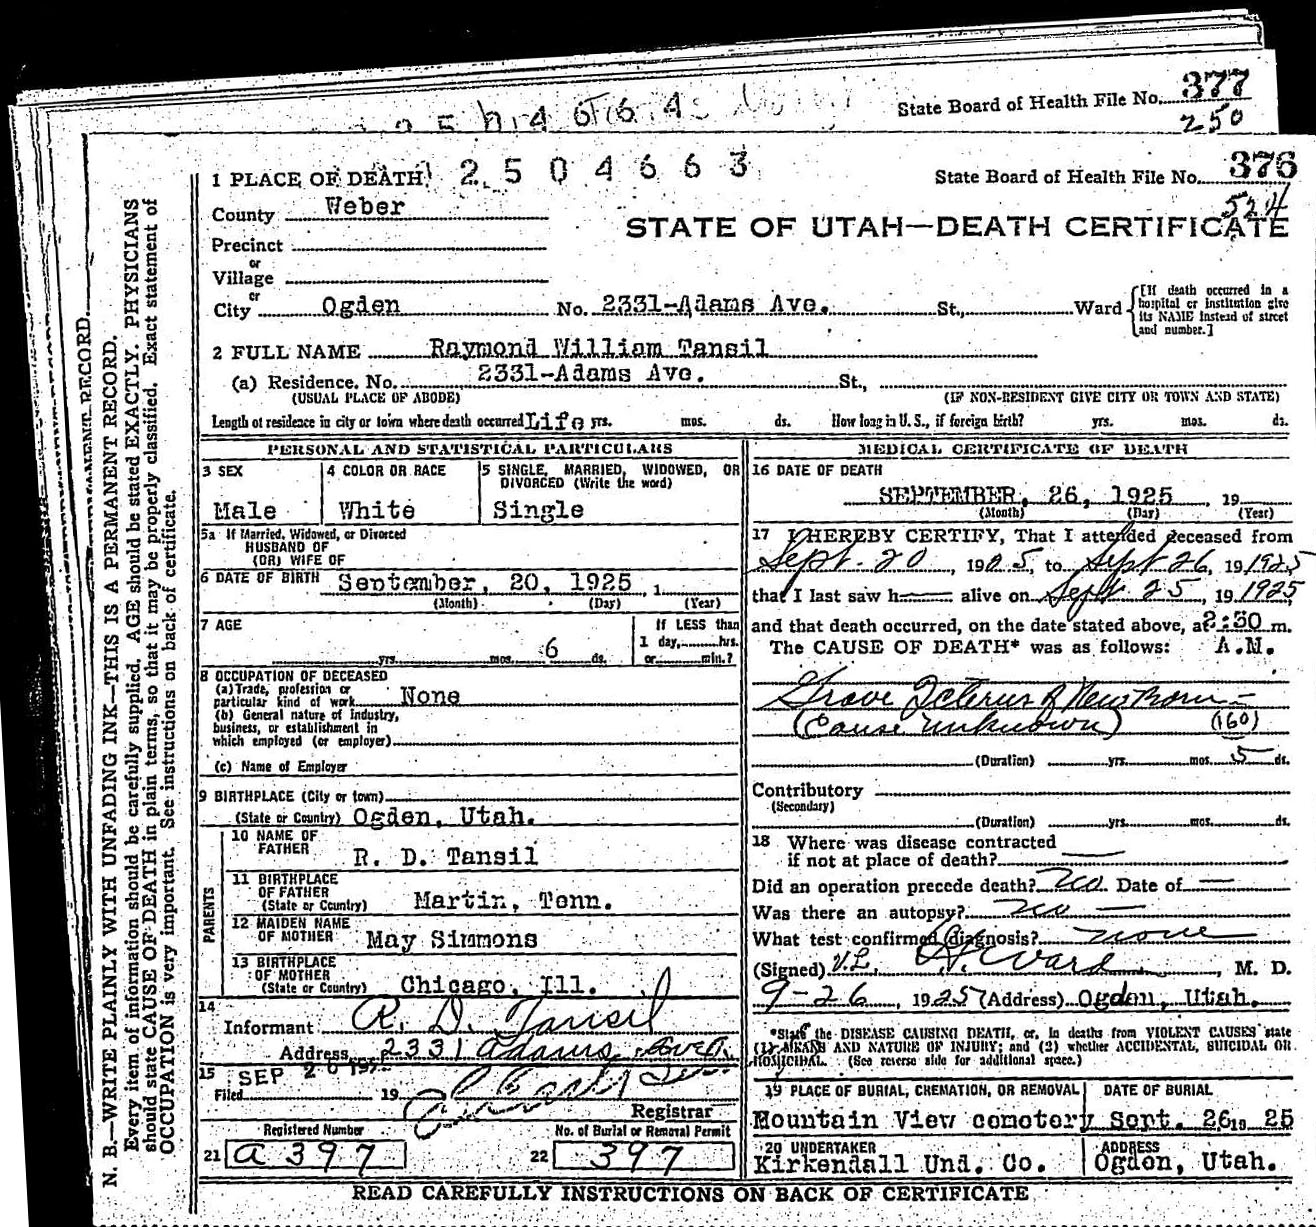 State Board of Health File No. 377
250
1 PLACE OF DEATH 2504663
State Board of Health File No. 376
524
County Weber
STATE OF UTAH—DEATH CERTIFICATE
Precinct
or
Village
or
City Ogden No. 2331-Adams Ave. St., Ward [If death occurred in a hospital or institution give its NAME instead of street and number.]
2 FULL NAME Raymond William Tansil
(a) Residence. No. 2331-Adams Ave. St.,
(USUAL PLACE OF ABODE) (IF NON-RESIDENT GIVE CITY OR TOWN AND STATE)
Length of residence in city or town where death occurred Life yrs. mos. ds. How long in U. S., if foreign birth? yrs. mos. ds.
PERSONAL AND STATISTICAL PARTICULARS
3 SEX
Male
4 COLOR OR RACE
White
5 SINGLE, MARRIED, WIDOWED, OR DIVORCED (Write the word)
Single
5a If Married, Widowed, or Divorced
HUSBAND OF
(OR) WIFE OF
6 DATE OF BIRTH September, 20, 1925, 1
(Month) (Day) (Year)
7 AGE
yrs. mos. 6 ds.
If LESS than
1 day, hrs.
or min.?
8 OCCUPATION OF DECEASED
(a) Trade, profession or
particular kind of work None
(b) General nature of industry,
business, or establishment in
which employed (or employer)
(c) Name of Employer
9 BIRTHPLACE (City or town)
(State or Country) Ogden, Utah.
PARENTS
10 NAME OF FATHER
R. D. Tansil
11 BIRTHPLACE OF FATHER
(State or Country) Martin, Tenn.
12 MAIDEN NAME OF MOTHER May Simmons
13 BIRTHPLACE OF MOTHER
(State or Country) Chicago, Ill.
14
Informant R. D. Tansil
Address 2331 Adams Ave.
15
Filed SEP 19
Registrar
Registered Number
21 a 397
No. of Burial or Removal Permit
22 397
MEDICAL CERTIFICATE OF DEATH
16 DATE OF DEATH
SEPTEMBER, 26, 1925, 19
(Month) (Day) (Year)
17 I HEREBY CERTIFY, That I attended deceased from
Sept. 20, 1925, to Sept 26, 19 1925
that I last saw h alive on Sept. 25, 19 1925
and that death occurred, on the date stated above, at 2:30 m.
The CAUSE OF DEATH* was as follows: A.M.
Grave Icterus of Newborn —
(Cause unknown) (160)
(Duration) yrs. mos. 5 ds.
Contributory
(Secondary)
(Duration) yrs. mos. ds.
18 Where was disease contracted
if not at place of death?
Did an operation precede death? no Date of —
Was there an autopsy? no —
What test confirmed diagnosis? none
(Signed) Ward, M. D.
9-26, 1925 (Address) Ogden, Utah.
*State the DISEASE CAUSING DEATH, or, in deaths from VIOLENT CAUSES state
(1) MEANS AND NATURE OF INJURY; and (2) whether ACCIDENTAL, SUICIDAL OR
HOMICIDAL. (See reverse side for additional space.)
19 PLACE OF BURIAL, CREMATION, OR REMOVAL
Mountain View cemetery
DATE OF BURIAL
Sept. 26 19 25
20 UNDERTAKER
Kirkendall Und. Co.
ADDRESS
Ogden, Utah.
READ CAREFULLY INSTRUCTIONS ON BACK OF CERTIFICATE
N. B.—WRITE PLAINLY WITH UNFADING INK—THIS IS A PERMANENT RECORD.
Every item of information should be carefully supplied. AGE should be stated EXACTLY. PHYSICIANS
should state CAUSE OF DEATH in plain terms, so that it may be properly classified. Exact statement of
OCCUPATION is very important. See instructions on back of certificate.
RECORD.